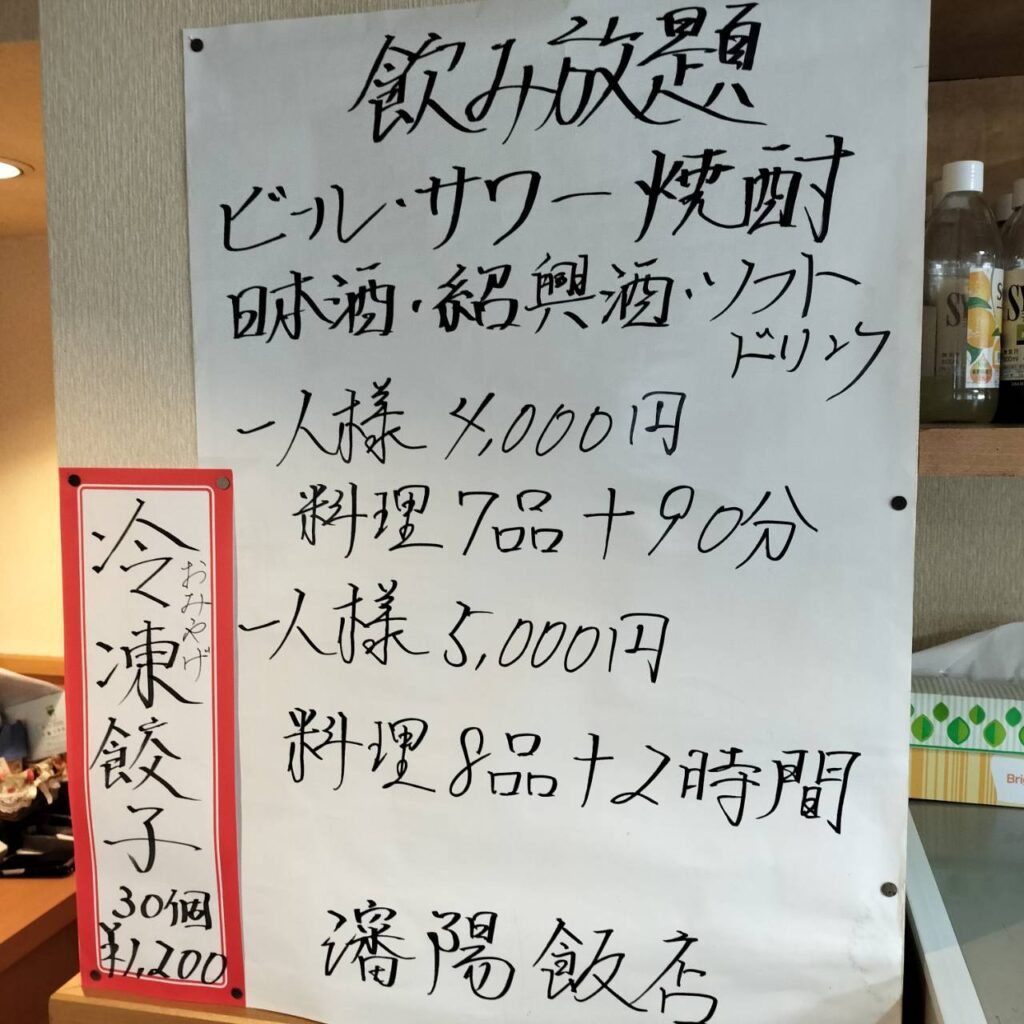 飲み放題
ビール・サワー焼酎
日本酒・紹興酒・ソフト
ドリンク
一人様 4,000円
料理7品+90分
一人様 5,000円
料理8品+2時間
瀋陽飯店
冷凍餃子
おみやげ
30個
¥1,200